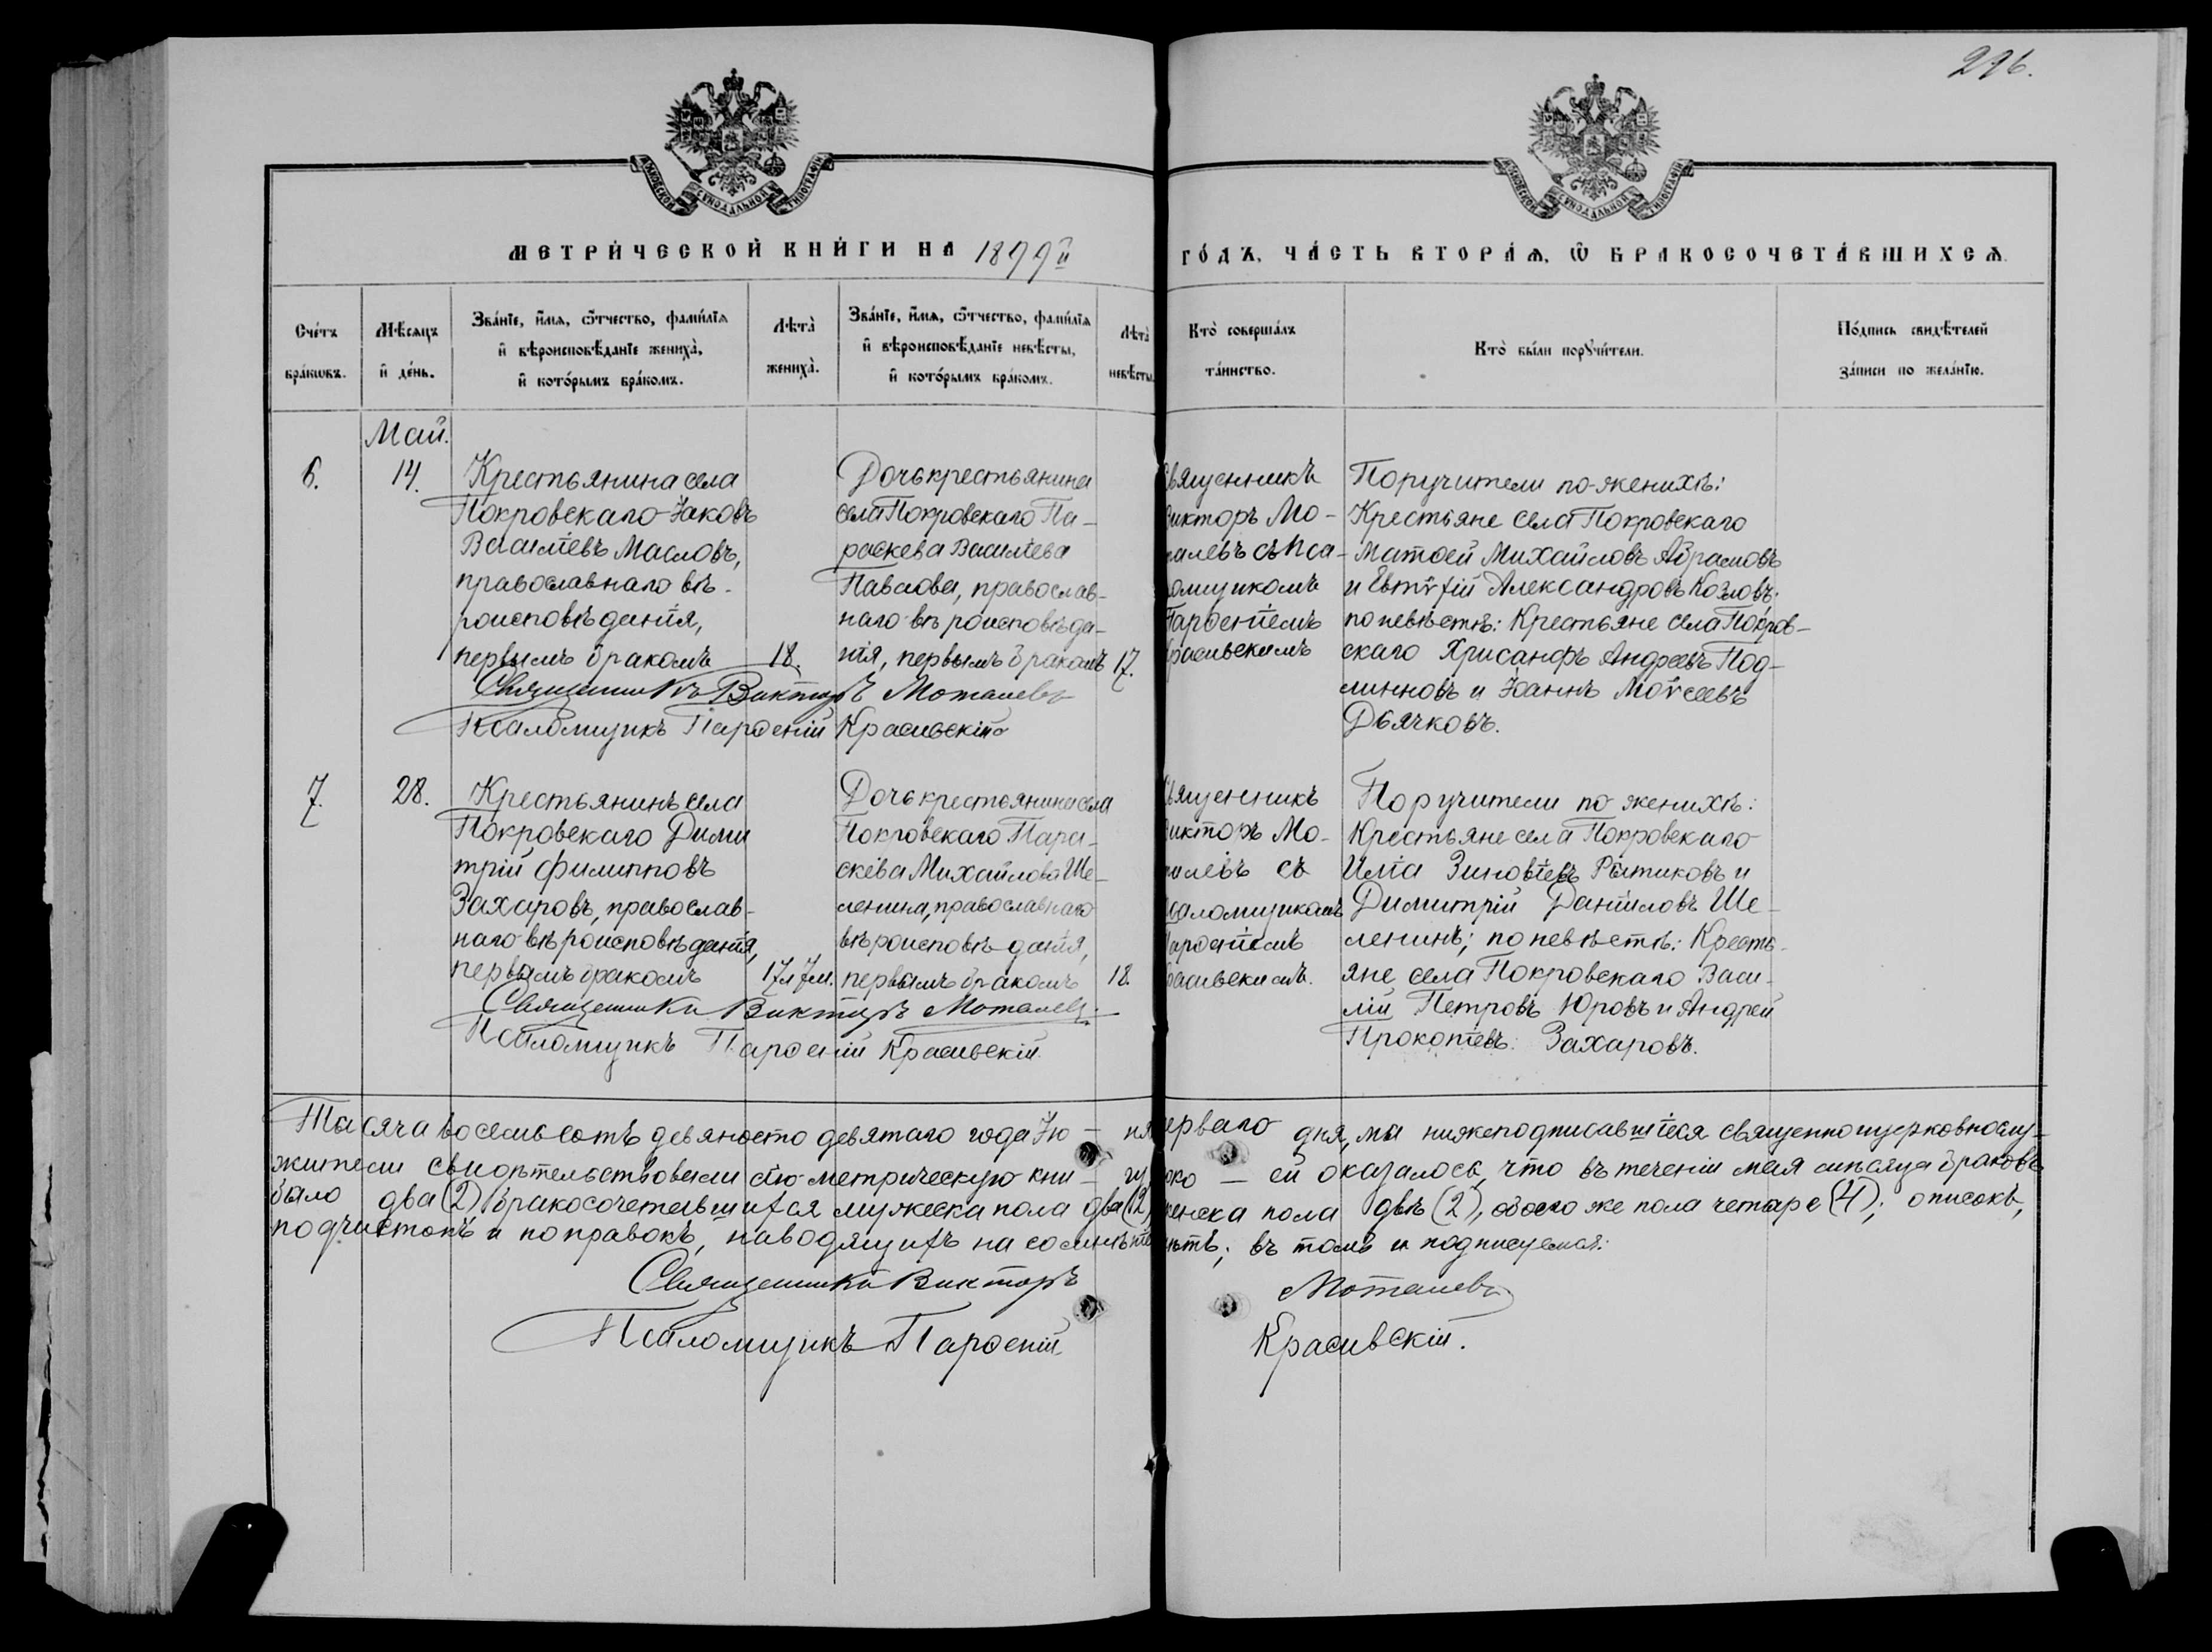 296.
МЕТРИ́ЧЕСКОЙ КНИ́ГИ НА 1899й ГО́ДЪ, ЧА́СТЬ ВТОРА́Ѧ, Ѽ БРАКОСОЧЕТА́ВШИХСѦ.
Сче́тъ
бра́кѡвъ.
Мѣ́сѧцъ
и҆ де́нь.
Зва́нїе, и҆́мѧ, ѻ҆́тчество, фами́лїѧ
и҆ вѣроисповѣ́данїе жениха̀,
и҆ кото́рымъ бра́комъ.
Лѣта̀
жениха̀.
Зва́нїе, и҆́мѧ, ѻ҆́тчество, фами́лїѧ
и҆ вѣроисповѣ́данїе невѣ́сты,
и҆ кото́рымъ бра́комъ.
Лѣта̀
невѣ́сты.
Кто̀ соверша́лъ
та́инство.
Кто̀ бы́ли порꙋчи́тели.
По́дпись свидѣ́телей
за́писи по жела́нїю.
Май.
6.
14.
Крестьянина села
Покровскаго Іаковъ
Василіевъ Масловъ,
православнаго вѣ-
роисповѣданія,
первымъ бракомъ
18.
Дочь крестьянина
села Покровскаго Па-
раскева Василіева
Павлова, православ-
наго вѣроисповѣда-
нія, первымъ бракомъ
17.
Священникъ
Викторъ Мо-
талевъ съ Пса-
ломщикомъ
Парѳеніемъ
Красивскимъ
Поручители по женихѣ:
Крестьяне села Покровскаго
Матѳей Михайловъ Абрамовъ
и Евтѵхій Александровъ Козловъ;
по невѣстѣ: Крестьяне села Покров-
скаго Хрисанфъ Андреевъ Под-
линновъ и Іоаннъ Моѵсеевъ
Дьячковъ.
Священникъ Викторъ Моталевъ
Псаломщикъ Парѳеній Красивскій
7.
28.
Крестьянинъ села
Покровскаго Дими
трій Филипповъ
Захаровъ, православ-
наго вѣроисповѣданія,
первымъ бракомъ
17л7м.
Дочь крестьянина села
Покровскаго Пара-
скева Михайлова Ше-
ленина, православнаго
вѣроисповѣданія,
первымъ бракомъ
18.
Священникъ
Викторъ Мо-
талевъ съ
Псаломщикомъ
Парѳеніемъ
Красивскимъ.
Поручители по женихѣ:
Крестьяне села Покровскаго
Илія Зиновіевъ Рытиковъ и
Димитрій Даніиловъ Ше-
ленинъ; по невѣстѣ: Кресть-
яне села Покровскаго Васи-
лій Петровъ Юровъ и Андрей
Прокопіевъ Захаровъ.
Священникъ Викторъ Моталевъ
Псаломщикъ Парѳеній Красивскій
Тысяча восемьсотъ девяносто девятаго года Ію - ня перваго дня, мы нижеподписавшіеся священноцерковнослу-
жители свидѣтельствовали сію метрическую кни - гу, по ко - ей оказалось, что въ теченіи мая мѣсяца браковъ
было два (2) бракосочетавшихся мужеска пола два (2), женска пола двѣ (2), обоего же пола четыре (4); описокъ,
подчистокъ и поправокъ, наводящихъ на сомнѣніе нѣтъ; въ томъ и подписуемся:
Священникъ Викторъ Моталевъ
Псаломщикъ Парѳеній Красивскій.